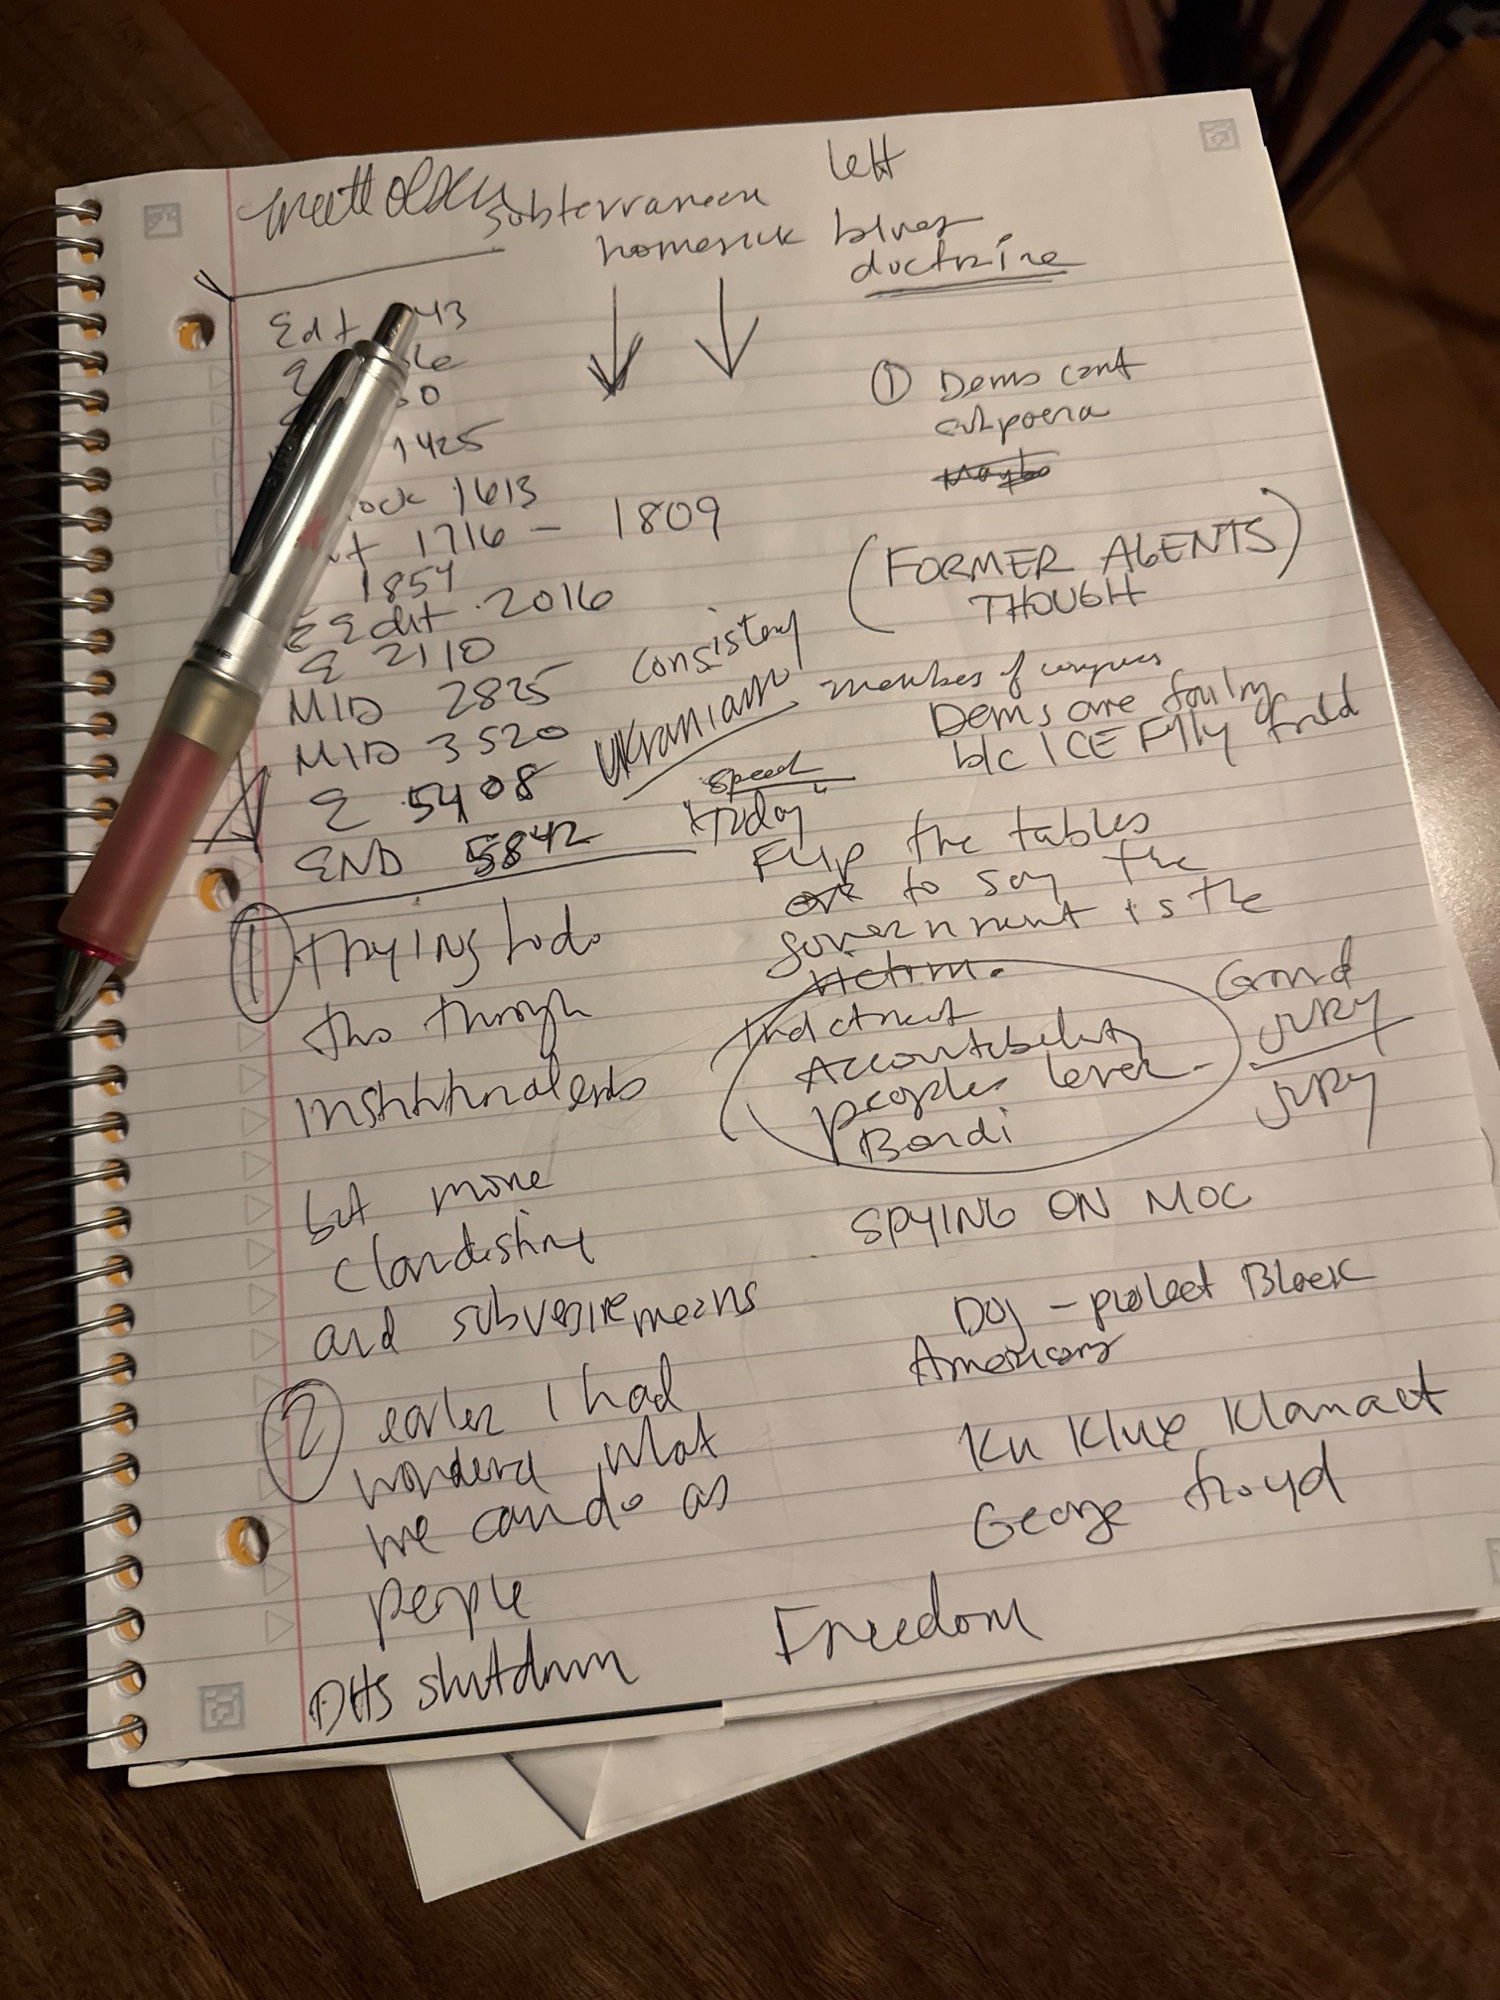 left
subterranean
homesick blues
doctrine
Edt 43
E
50
1425
ock 1613
1716 - 1809
1854
E Edit 2016
E 2110
MID 2825
MID 3520
E 5408
END 5842
① Dems cant
subpoena
Maybe
(FORMER AGENTS)
THOUGH
consistency
Ukranians
members of congress
Dems are
b/c ICE
speed
today
Flip the tables
to say the
government is the
victim.
Indictment
Accountability
peoples lever
Bondi
Grand
JURY
JURY
SPYING ON MOC
DOJ - protect Black
Americans
Ku Klux Klan act
George Floyd
Freedom
① TRYING to do
this through
but more
clandestine
and subversive means
② earlier I had
wondered what
we can do as
people
DHS shutdown